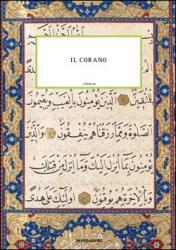 IL CORANO
للمتقين الذين يؤمنون بالغيب ويقيمون
الصلوة ومما رزقناهم ينفقون والذين
يؤمنون بما أنزل إليك وما أنزل من قبلك
وبالآخرة هم يوقنون أولئك على هدى
MONDADORI